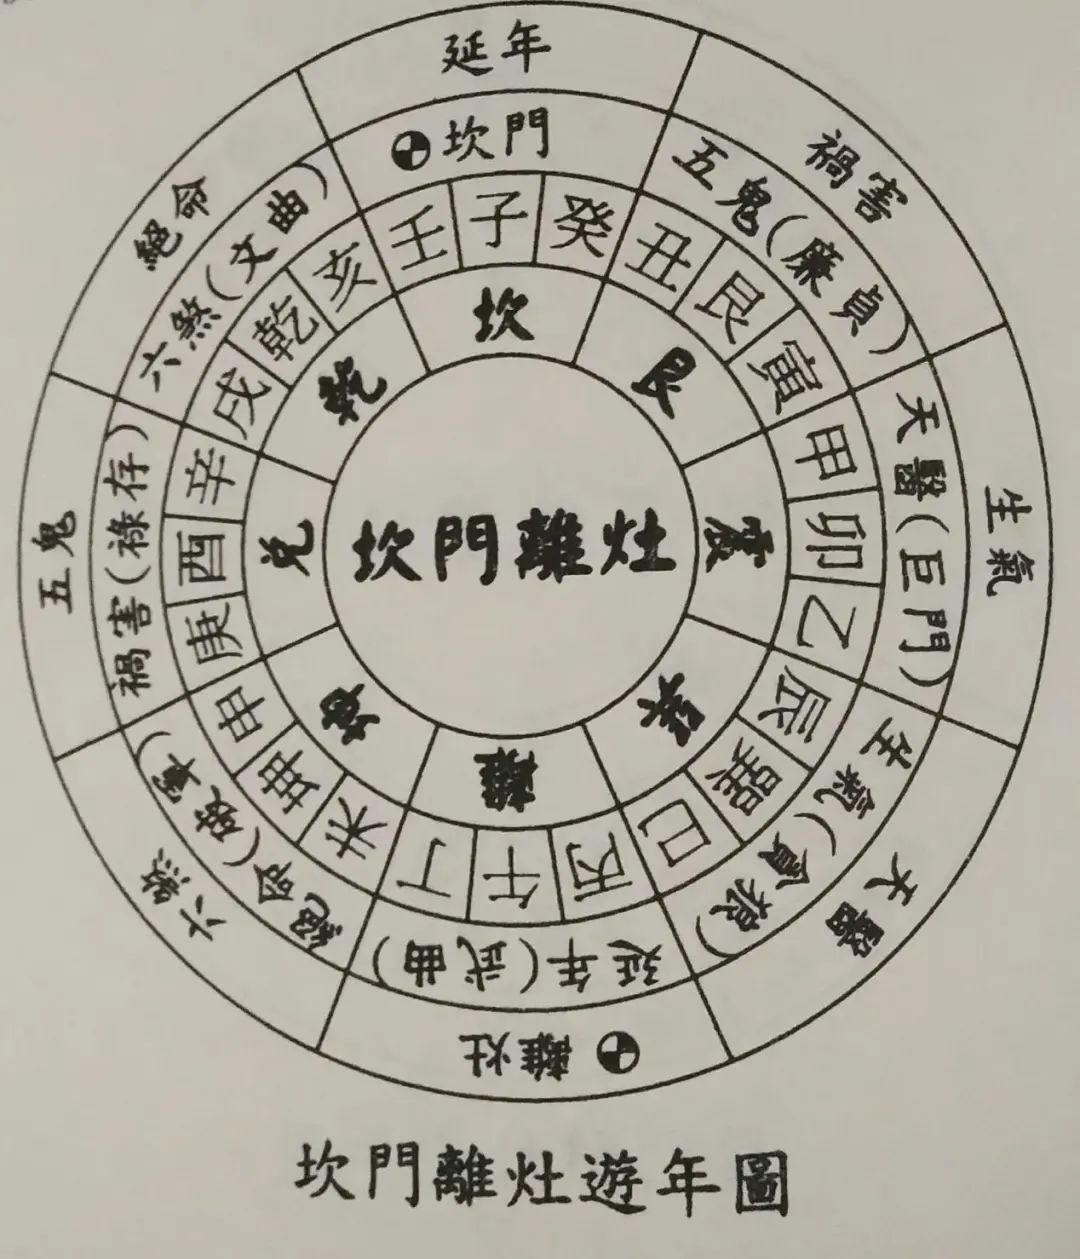 延年
禍害
生氣
天醫
離灶
六煞
五鬼
絕命
坎門
五鬼(廉貞)
天醫(巨門)
生氣(貪狼)
延年(武曲)
絕命(破軍)
禍害(祿存)
六煞(文曲)
壬子癸
丑艮寅
甲卯乙
辰巽巳
丙午丁
未坤申
庚酉辛
戌乾亥
坎
艮
震
巽
離
坤
兌
乾
坎門離灶
坎門離灶遊年圖